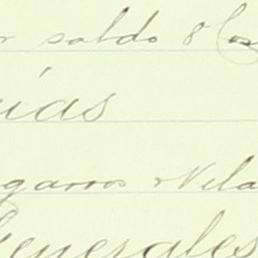 r saldo 8
ias
garros Vela
Generales